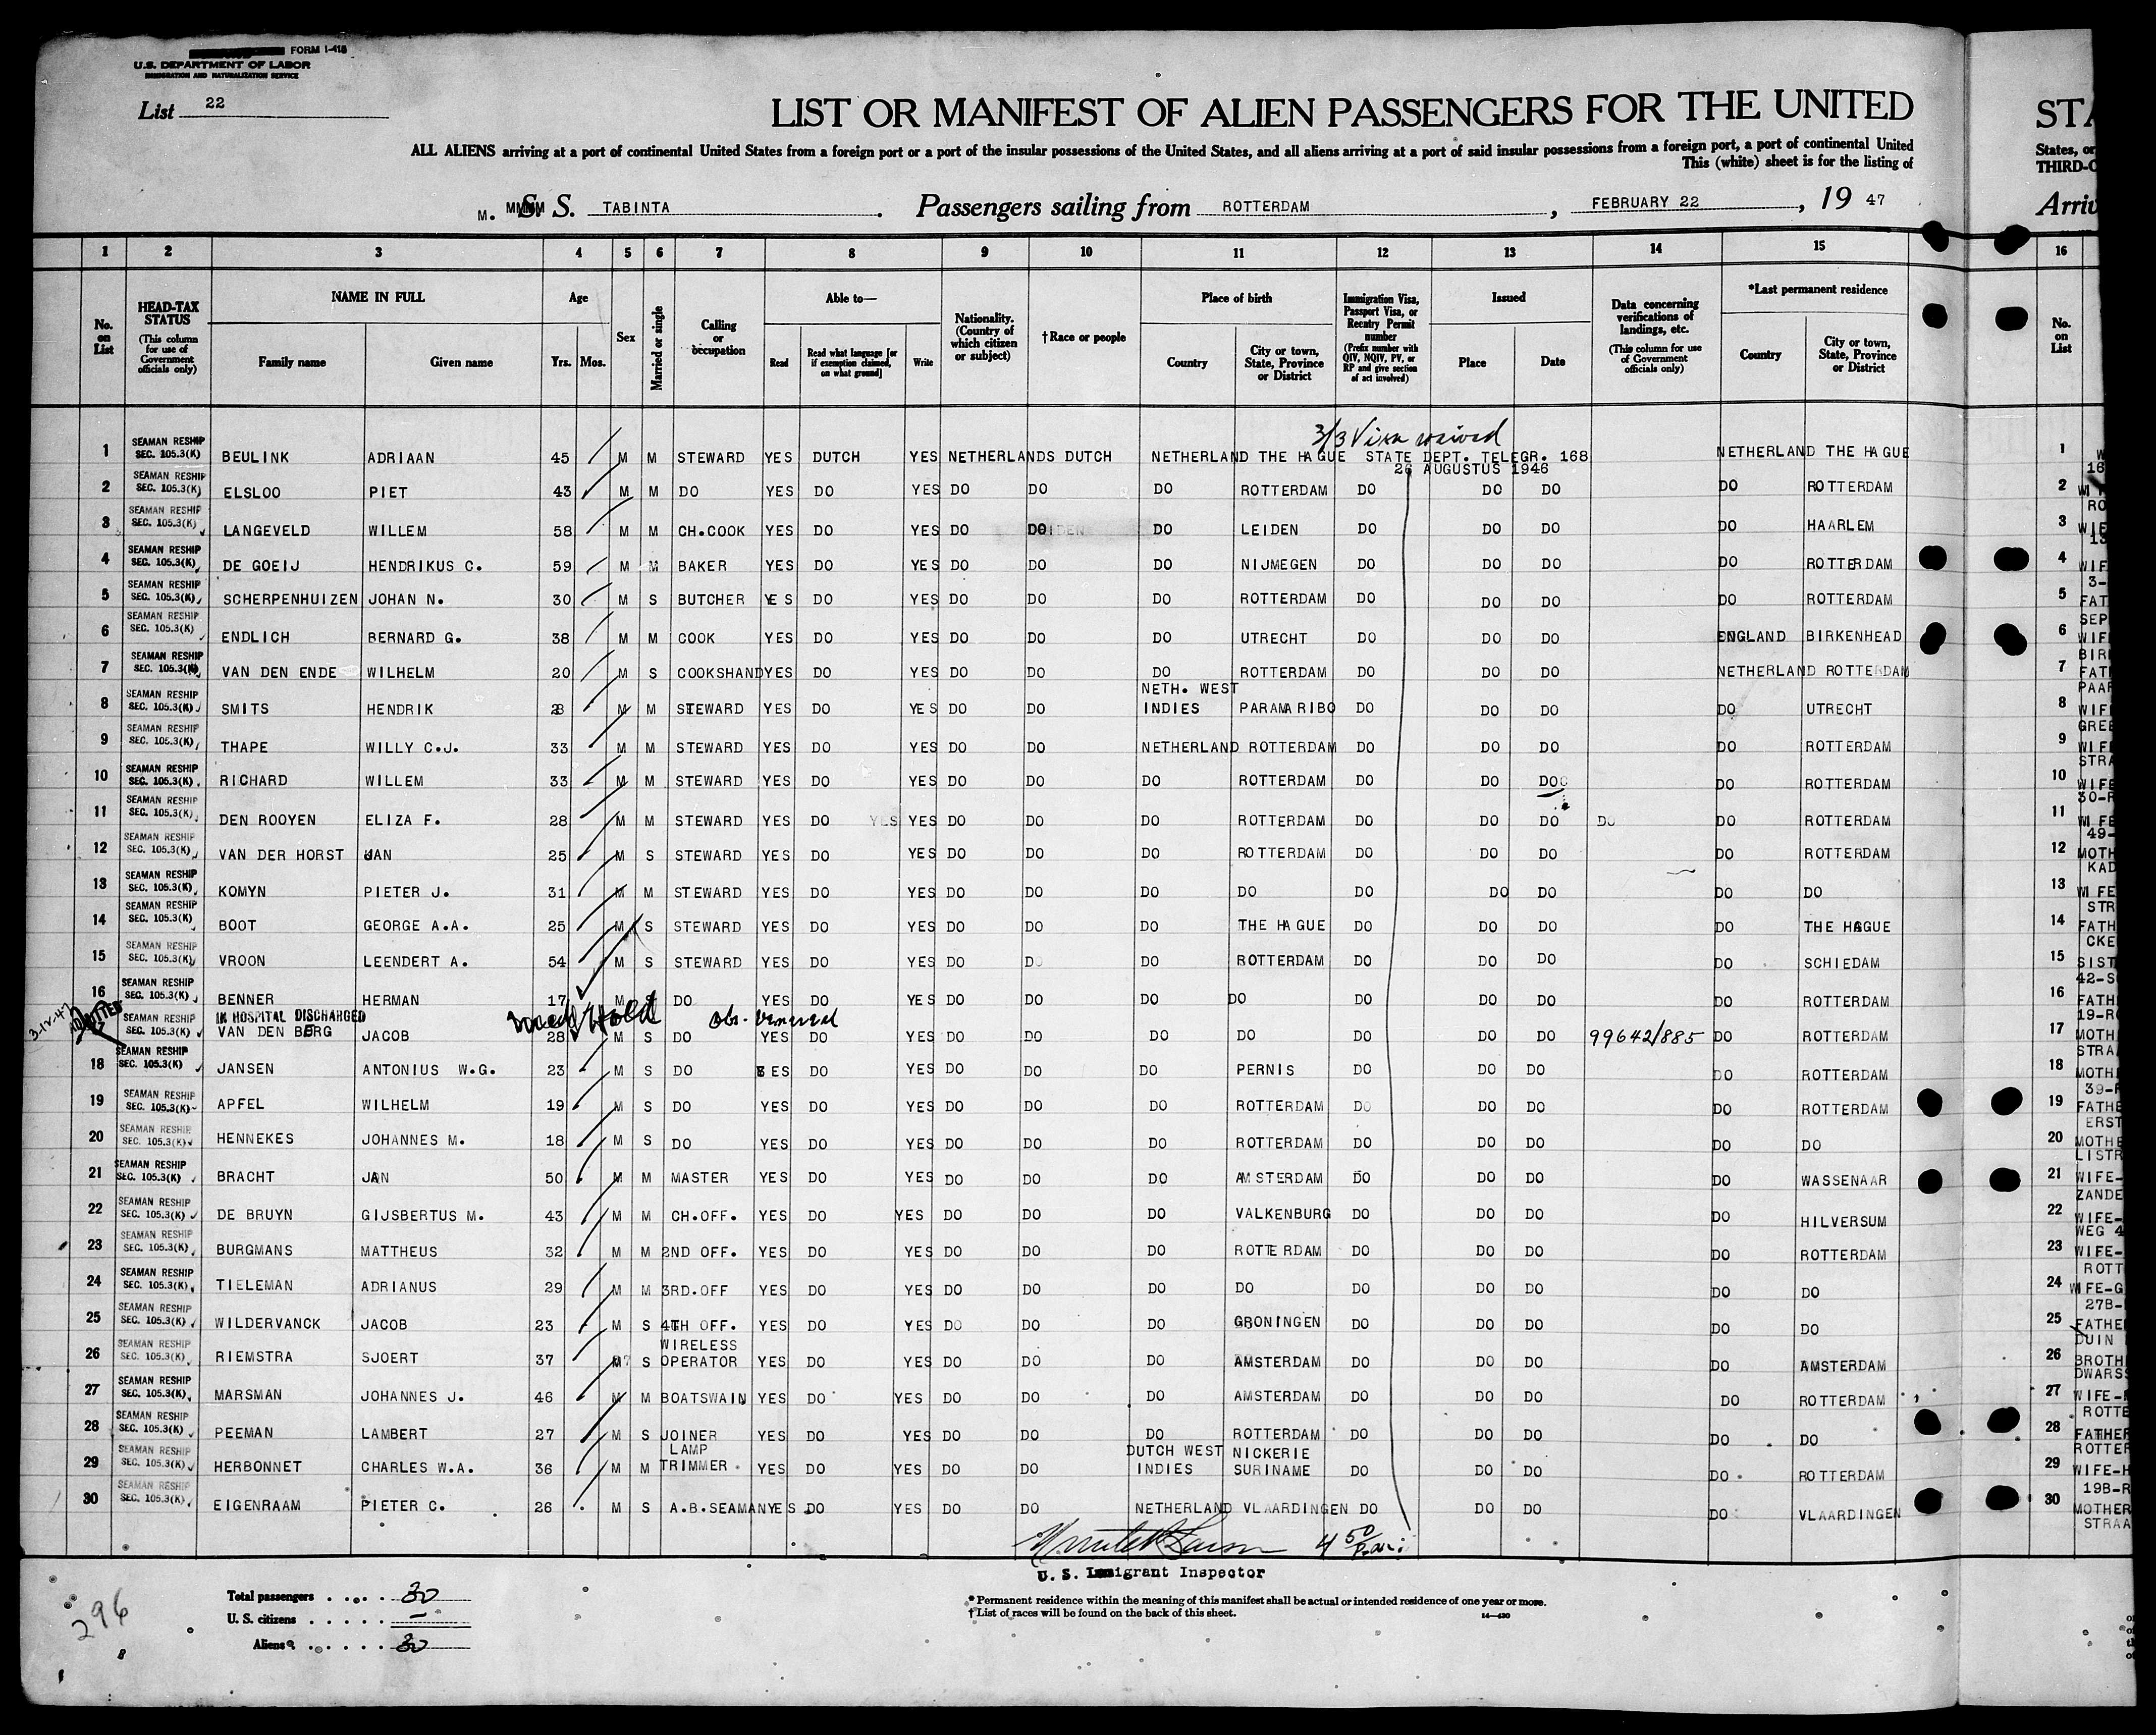 FORM I-415
U.S. DEPARTMENT OF LABOR
IMMIGRATION AND NATURALIZATION SERVICE
List 22
LIST OR MANIFEST OF ALIEN PASSENGERS FOR THE UNITED
ALL ALIENS arriving at a port of continental United States from a foreign port or a port of the insular possessions of the United States, and all aliens arriving at a port of said insular possessions from a foreign port, a port of continental United
This (white) sheet is for the listing of
M. S. S. TABINTA. Passengers sailing from ROTTERDAM, FEBRUARY 22, 19 47
1 2 3 4 5 6 7 8 9 10 11 12 13 14 15
No. on List
HEAD-TAX STATUS (This column for use of Government officials only)
NAME IN FULL Family name Given name
Age Yrs. Mos.
Sex
Married or single
Calling or occupation
Able to— Read Read what language [or if exemption claimed, on what ground] Write
Nationality. (Country of which citizen or subject)
†Race or people
Place of birth Country City or town, State, Province or District
Immigration Visa, Passport Visa, or Reentry Permit number (Prefix number with QIV, NQIV, PV, or RP and give section of act involved)
Issued Place Date
Data concerning verifications of landings, etc. (This column for use of Government officials only)
*Last permanent residence Country City or town, State, Province or District
3/3 Visa waived
1 SEAMAN RESHIP SEC. 105.3(K) BEULINK ADRIAAN 45 M M STEWARD YES DUTCH YES NETHERLANDS DUTCH NETHERLAND THE HAGUE STATE DEPT. TELEGR. 168 NETHERLAND THE HAGUE
26 AUGUSTUS 1946
2 SEAMAN RESHIP SEC. 105.3(K) ELSLOO PIET 43 M M DO YES DO YES DO DO DO ROTTERDAM DO DO DO DO ROTTERDAM
3 SEAMAN RESHIP SEC. 105.3(K) LANGEVELD WILLEM 58 M M CH.COOK YES DO YES DO DO DO LEIDEN DO DO DO DO HAARLEM
4 SEAMAN RESHIP SEC. 105.3(K) DE GOEIJ HENDRIKUS C. 59 M M BAKER YES DO YES DO DO DO NIJMEGEN DO DO DO DO ROTTERDAM
5 SEAMAN RESHIP SEC. 105.3(K) SCHERPENHUIZEN JOHAN N. 30 M S BUTCHER YES DO YES DO DO DO ROTTERDAM DO DO DO DO ROTTERDAM
6 SEAMAN RESHIP SEC. 105.3(K) ENDLICH BERNARD G. 38 M M COOK YES DO YES DO DO DO UTRECHT DO DO DO ENGLAND BIRKENHEAD
7 SEAMAN RESHIP SEC. 105.3(K) VAN DEN ENDE WILHELM 20 M S COOKSHAND YES DO YES DO DO DO ROTTERDAM DO DO DO NETHERLAND ROTTERDAM
8 SEAMAN RESHIP SEC. 105.3(K) SMITS HENDRIK 28 M M STEWARD YES DO YES DO DO NETH. WEST INDIES PARAMARIBO DO DO DO DO UTRECHT
9 SEAMAN RESHIP SEC. 105.3(K) THAPE WILLY C.J. 33 M M STEWARD YES DO YES DO DO NETHERLAND ROTTERDAM DO DO DO DO ROTTERDAM
10 SEAMAN RESHIP SEC. 105.3(K) RICHARD WILLEM 33 M M STEWARD YES DO YES DO DO DO ROTTERDAM DO DO DO DO ROTTERDAM
11 SEAMAN RESHIP SEC. 105.3(K) DEN ROOYEN ELIZA F. 28 M M STEWARD YES DO YES YES DO DO DO ROTTERDAM DO DO DO DO DO ROTTERDAM
12 SEAMAN RESHIP SEC. 105.3(K) VAN DER HORST JAN 25 M S STEWARD YES DO YES DO DO DO ROTTERDAM DO DO DO DO ROTTERDAM
13 SEAMAN RESHIP SEC. 105.3(K) KOMYN PIETER J. 31 M M STEWARD YES DO YES DO DO DO DO DO DO DO DO DO
14 SEAMAN RESHIP SEC. 105.3(K) BOOT GEORGE A.A. 25 M S STEWARD YES DO YES DO DO DO THE HAGUE DO DO DO DO THE HAGUE
15 SEAMAN RESHIP SEC. 105.3(K) VROON LEENDERT A. 54 M S STEWARD YES DO YES DO DO DO ROTTERDAM DO DO DO DO SCHIEDAM
16 SEAMAN RESHIP SEC. 105.3(K) BENNER HERMAN 17 M S DO YES DO YES DO DO DO DO DO DO DO DO ROTTERDAM
3-12-47 ADMITTED IN HOSPITAL DISCHARGED Hold
17 SEAMAN RESHIP SEC. 105.3(K) VAN DEN BERG JACOB 28 M S DO YES DO YES DO DO DO DO DO DO DO 99642/885 DO ROTTERDAM
18 SEAMAN RESHIP SEC. 105.3(K) JANSEN ANTONIUS W.G. 23 M S DO YES DO YES DO DO DO PERNIS DO DO DO DO ROTTERDAM
19 SEAMAN RESHIP SEC. 105.3(K) APFEL WILHELM 19 M S DO YES DO YES DO DO DO ROTTERDAM DO DO DO DO ROTTERDAM
20 SEAMAN RESHIP SEC. 105.3(K) HENNEKES JOHANNES M. 18 M S DO YES DO YES DO DO DO ROTTERDAM DO DO DO DO DO
21 SEAMAN RESHIP SEC. 105.3(K) BRACHT JAN 50 M M MASTER YES DO YES DO DO DO AMSTERDAM DO DO DO DO WASSENAAR
22 SEAMAN RESHIP SEC. 105.3(K) DE BRUYN GIJSBERTUS M. 43 M M CH.OFF. YES DO YES DO DO DO VALKENBURG DO DO DO DO HILVERSUM
23 SEAMAN RESHIP SEC. 105.3(K) BURGMANS MATTHEUS 32 M M 2ND OFF. YES DO YES DO DO DO ROTTERDAM DO DO DO DO ROTTERDAM
24 SEAMAN RESHIP SEC. 105.3(K) TIELEMAN ADRIANUS 29 M M 3RD.OFF YES DO YES DO DO DO DO DO DO DO DO DO
25 SEAMAN RESHIP SEC. 105.3(K) WILDERVANCK JACOB 23 M S 4TH OFF. YES DO YES DO DO DO GRONINGEN DO DO DO DO DO
26 SEAMAN RESHIP SEC. 105.3(K) RIEMSTRA SJOERT 37 M S WIRELESS OPERATOR YES DO YES DO DO DO AMSTERDAM DO DO DO DO AMSTERDAM
27 SEAMAN RESHIP SEC. 105.3(K) MARSMAN JOHANNES J. 46 M M BOATSWAIN YES DO YES DO DO DO AMSTERDAM DO DO DO DO ROTTERDAM
28 SEAMAN RESHIP SEC. 105.3(K) PEEMAN LAMBERT 27 M S JOINER YES DO YES DO DO DO ROTTERDAM DO DO DO DO DO
29 SEAMAN RESHIP SEC. 105.3(K) HERBONNET CHARLES W.A. 36 M M LAMP TRIMMER YES DO YES DO DO DUTCH WEST INDIES NICKERIE SURINAME DO DO DO DO ROTTERDAM
30 SEAMAN RESHIP SEC. 105.3(K) EIGENRAAM PIETER C. 26 M S A.B.SEAMAN YES DO YES DO DO NETHERLAND VLAARDINGEN DO DO DO DO VLAARDINGEN
4 50 p.m.
U. S. Immigrant Inspector
Total passengers 30
U. S. citizens —
Aliens 30
296
*Permanent residence within the meaning of this manifest shall be actual or intended residence of one year or more.
†List of races will be found on the back of this sheet.
14—430
STA
States, or
THIRD-C
Arriv
16
No. on List
1
16
2
RO
3 WIF
13
4 WIF
3-
5 FAT
SEP
6 WIF
BIR
7 FAT
PAAR
8 WIF
GREE
9 WIF
STRA
10 WIFE
30-R
11 WIFE
49-
12 MOTH
KAD
13 WIFE
STR
14 FATH
CKE
15 SIST
42-S
16 FATH
19-R
17 MOTH
STRA
18 MOTH
39-
19 FATHE
ERST
20 MOTHE
LISTR
21 WIFE-
ZANDE
22 WIFE-
WEG 4
23 WIFE-
ROTT
24 WIFE-G
27B-
25 FATHE
DUIN
26 BROTH
DWARS
27 WIFE-
ROTTE
28 FATHER
ROTTER
29 WIFE-H
19B-R
30 MOTHER
STRAA